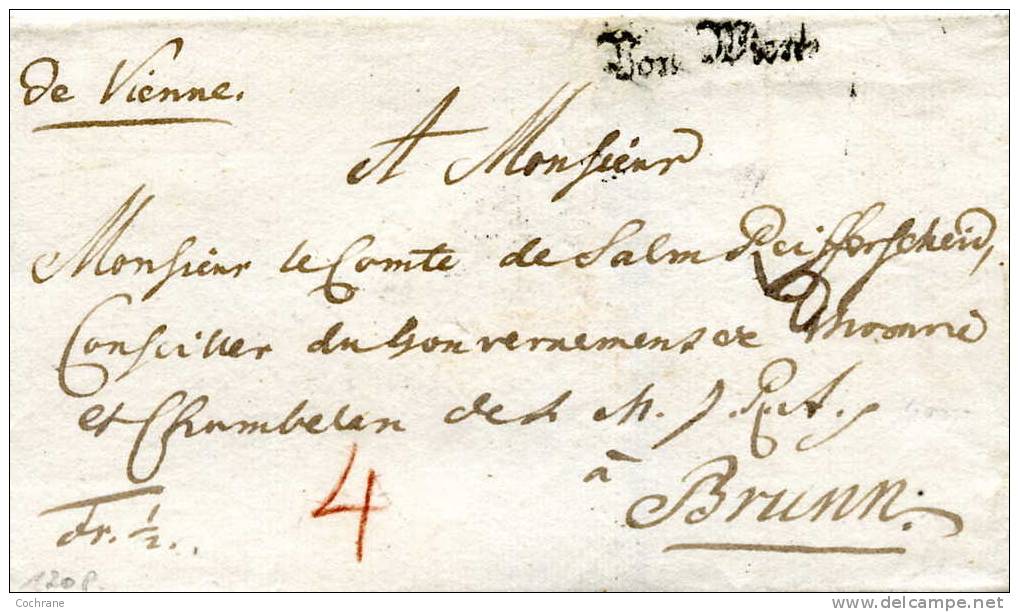 Von Wien
de Vienne.
A Monsieur
Monsieur le Comte de Salm Reifferscheid,
Conseiller du Gouvernement de
et Chambelan de
4
à
Brunn.
fr. 1/2.
Cochrane
www.delcampe.net